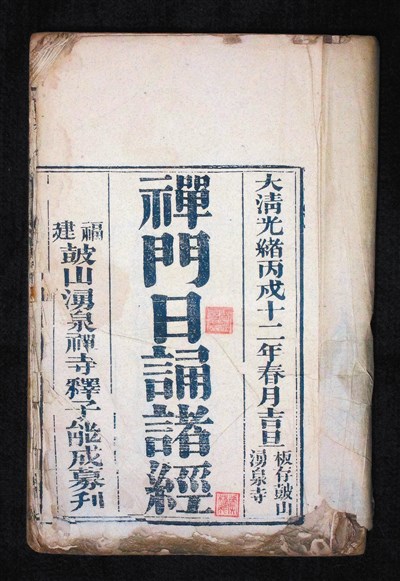 大清光緒丙戌十二年春月吉旦
板存鼓山
湧泉寺
禪門日誦諸經
福建
鼓山湧泉禪寺釋子能成募刋